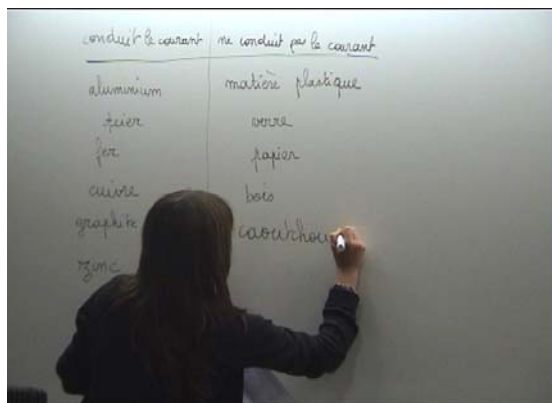 conduit le courant ne conduit pas le courant
aluminium matière plastique
fer papier
verre
cuivre bois
graphite caoutchou
zinc